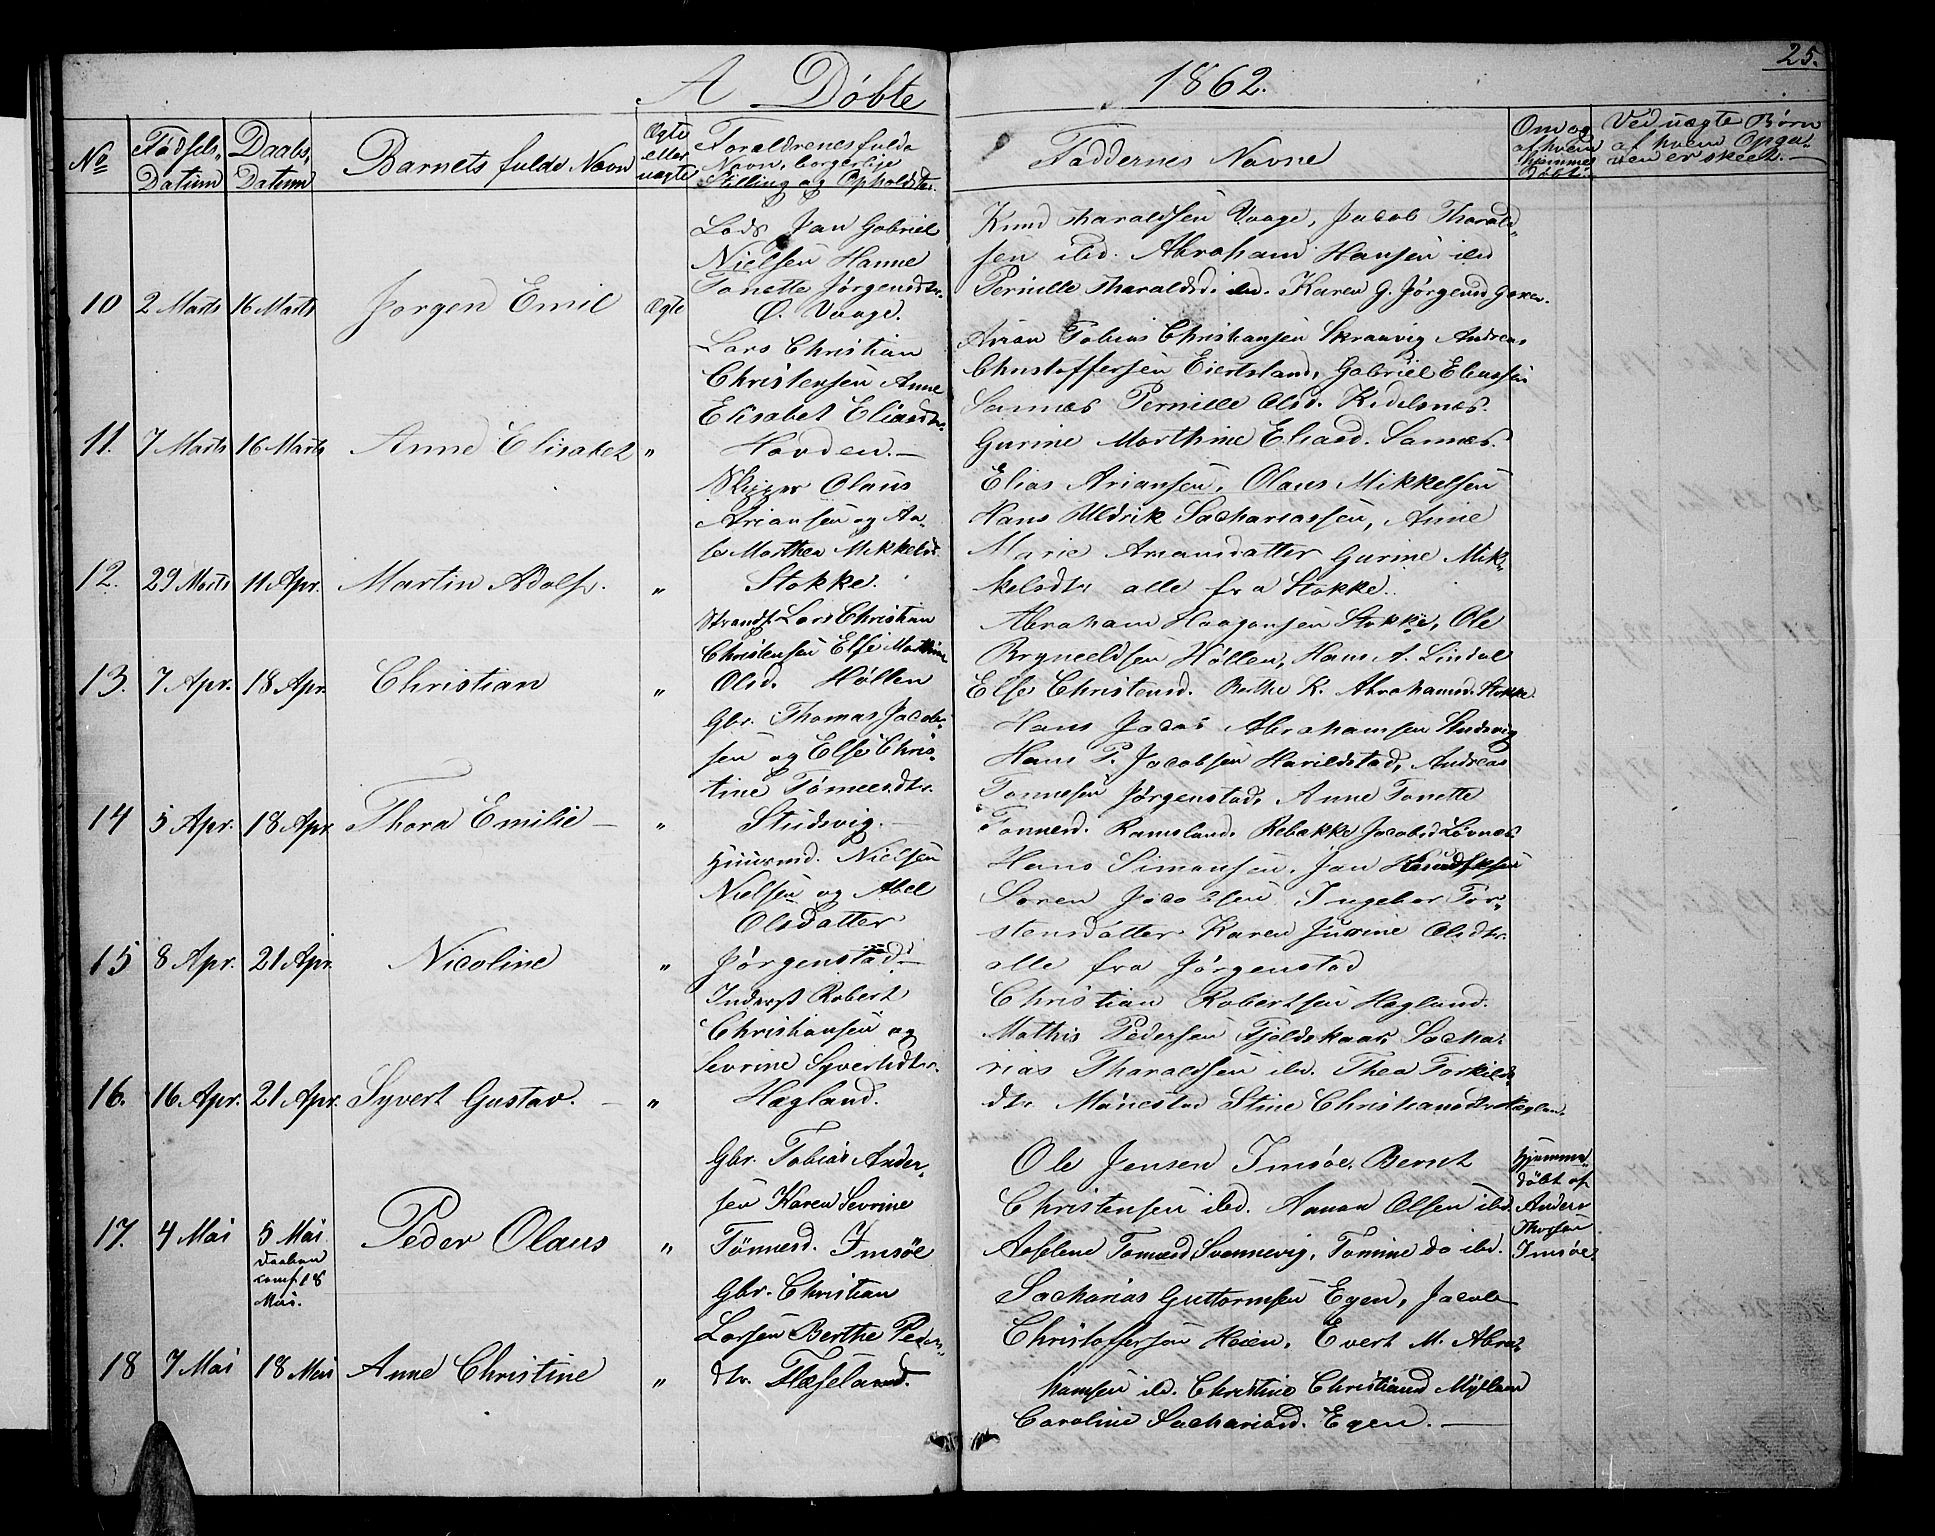 25.
A Døbte 1862.
No
Fødsels Datum
Daabs Datum
Barnets fulde Navn
Ægte eller uægte
Forældrenes fulde Navn, borgerlige Stilling og Opholdst.
Faddernes Navne
Om og af hvem hjemmedøbt.
Ved uægte Børn af hvem Opgaven er skeet.
10 2 Marts 16 Marts Jørgen Emil Ægte
Lods Jan Gabriel
Nielsen Hanne
Tonette Jørgensdtr.
Ø. Vaage.
Knud Tharaldsen Vaage, Jacob Tharald-
sen ibd. Abraham Hansen ibd
Pernille Tharaldsd. ibd. Karen G. Jørgensd
11. 7 Marts 16 Marts Anne Elisabet "
Lars Christian
Christensen Anne
Elisabet Eliasdtr.
Hovden.
Arian Tobias Christiansen Skraavig Andreas
Christoffersen Eiertsland, Gabriel Eliassen
Sannæs Pernille Olsd. Kidelsnæs.
Gurine Marthine Eliasd. Sannæs.
12. 29 Marts 11 Apr. Martin Adolf. "
Skipper Olaus
Ariansen og An-
ne Marthea Mikkelsd.
Stokke.
Elias Ariansen, Olaus Mikkelsen
Hans Uldrik Sachariassen, Anne
Marie Ariansdatter Gurine Mik-
kelsdtr alle fra Stokke.
13. 7 Apr. 18 Apr. Christian "
Strands. Lars Christian
Christensen Else Marthine
Olsd. Høllen
Abraham Haagensen Stokke, Ole
Bryneeldsen Høllen, Hans A. Lindal
Else Christensd. Berthe K. Abrahamsd. Stokke
14 5 Apr. 18 Apr. Thora Emilie "
Gbr. Thomas Jacob-
sen og Else Chris-
tine Tønnesdtr.
Studsvig.
Hans Jacob Abrahamsen Studsvig
Hans P. Jacobsen Harildstad, Andreas
Tønnesen Jørgenstad, Anne Tonette
Tønnesd. Ramsland, Rebakke Jacobsd Løvnæs
15 8 Apr. 21 Apr. Nicoline "
Huusmd. Nielsen
Nielsen og Abel
Olsdatter
Jørgenstad
Hans Simonsen, Jan
Søren Jacobsen Ingebor Tor-
stensdatter Karen Jurine Olsdtr.
alle fra Jørgenstad
16. 16 Apr. 21 Apr. Syvert Gustav. "
Inderst Robert
Christiansen og
Sevrine Syvertsdtr.
Hægland.
Christian Robertsen Hægland.
Mathis Pedersen Fjeldskaar, Sacha-
rias Tharaldsen ibd. Thea Torkilds
dtr Mønestad Stine Christiansdtr Hægland.
17. 4 Mai 5 Mai Daaben conf. 18 Mai. Peder Olaus "
Gbr. Tobias Ander-
sen Karen Sevrine
Tønnesd. Imsøe
Ole Jensen Imsøe, Bernt
Christensen ibd. Aanon Olsen ibd.
Aaselene Tønnesd Svennevig, Tomine do ibd.
Hjemme-
døbt af
Anders
Thorsen
Imsøe.
18 7 Mai 18 Mai Anne Christine "
Gbr. Christian
Larsen Berthe Peders-
dtr. Flæseland.
Sacharias Guttormsen Egen, Jacob
Christoffersen Heien, Evert M. Abra-
hamsen ibd. Christine Christiansd
Caroline Sachariasd. Egen.